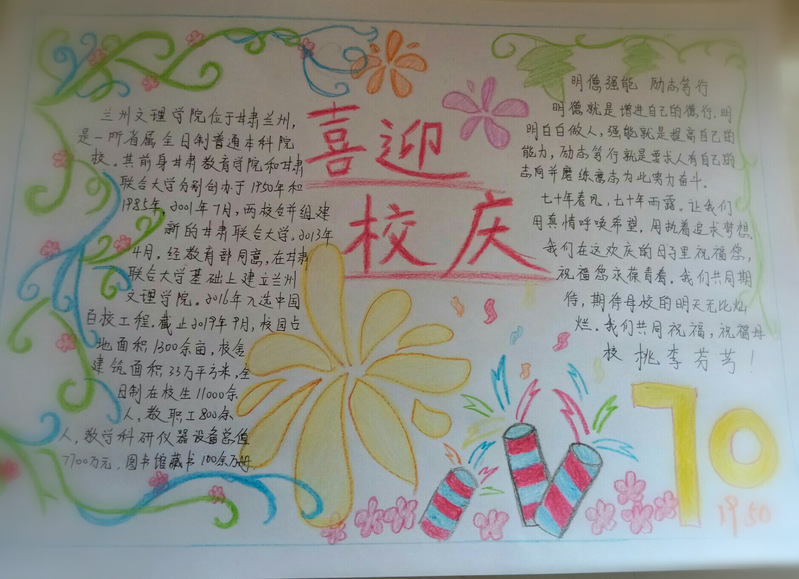 喜迎
校庆
兰州文理学院位于甘肃兰州,
是一所省属全日制普通本科院
校。其前身甘肃教育学院和甘肃
联合大学分别创办于1950年和
1985年,2001年7月,两校合并组建
新的甘肃联合大学。2013年
4月,经教育部同意,在甘肃
联合大学基础上建立兰州
文理学院。2016年入选中国
百校工程。截止2019年9月,校园占
地面积1300余亩,校舍
建筑面积33万平方米,全
日制在校生11000余
人,教职工800余
人,教学科研仪器设备总值
7700万元,图书馆藏书100余万册。
明德强能 励志笃行
明德就是增进自己的德行,明
明白白做人,强能就是提高自己的
能力,励志笃行就是要求人有自己的
志向并磨练意志为此努力奋斗。
七十年春风,七十年雨露。让我们
用真情呼唤希望,用执着追求梦想
我们在这欢庆的日子里祝福您,
祝福您永葆青春。我们共同期
待,期待母校的明天无比灿
烂。我们共同祝福,祝福母
校 桃李芬芳!
70
1950